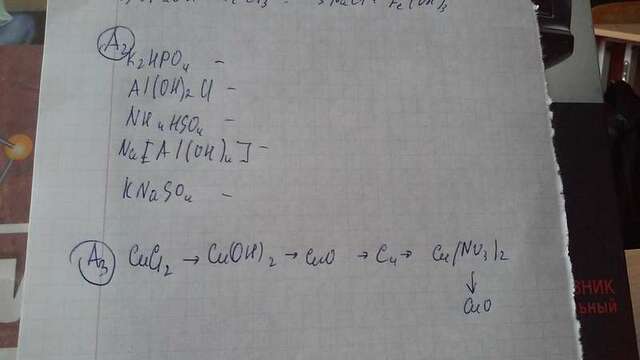 A2
K2HPO4 -
Al(OH)2Cl -
NH4HSO4 -
Na[Al(OH)4] -
KNaSO4 -
A3 CuCl2 → Cu(OH)2 → CuO → Cu → Cu(NO3)2
↓
CuO
НИК
ЬНЫЙ